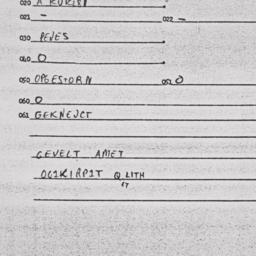 020 A KUKISI
021 - 022 -
030 PEVES
040 O
050 OPGESTORN 052 O
060 O
061 GEKNEVCT
GEVELT AMET
OG1KIAP1T Q LITH
IT